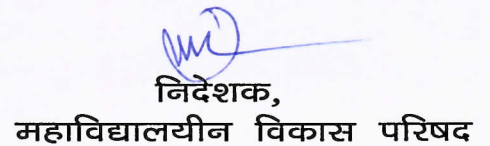 निदेशक,
महाविद्यालयीन विकास परिषद